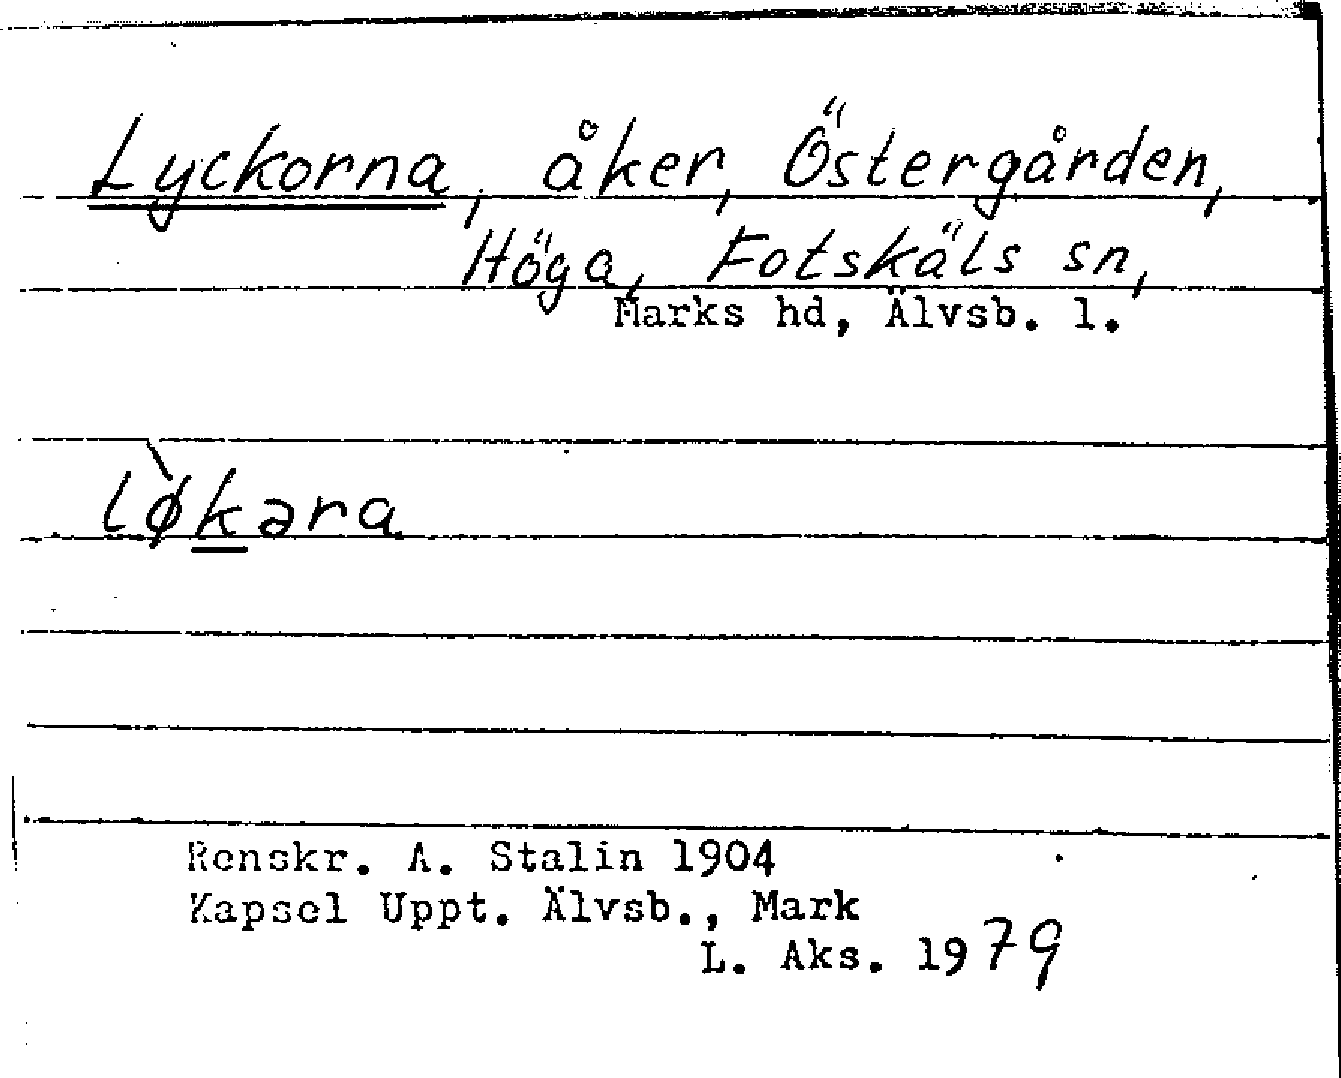 Lyckorna, åker, Östergården,
Höga, Fotskäls sn,
Marks hd, Älvsb. l.
lø̀kəra
Renskr. A. Stalin 1904
Kapsel Uppt. Älvsb., Mark
L. Aks. 1979